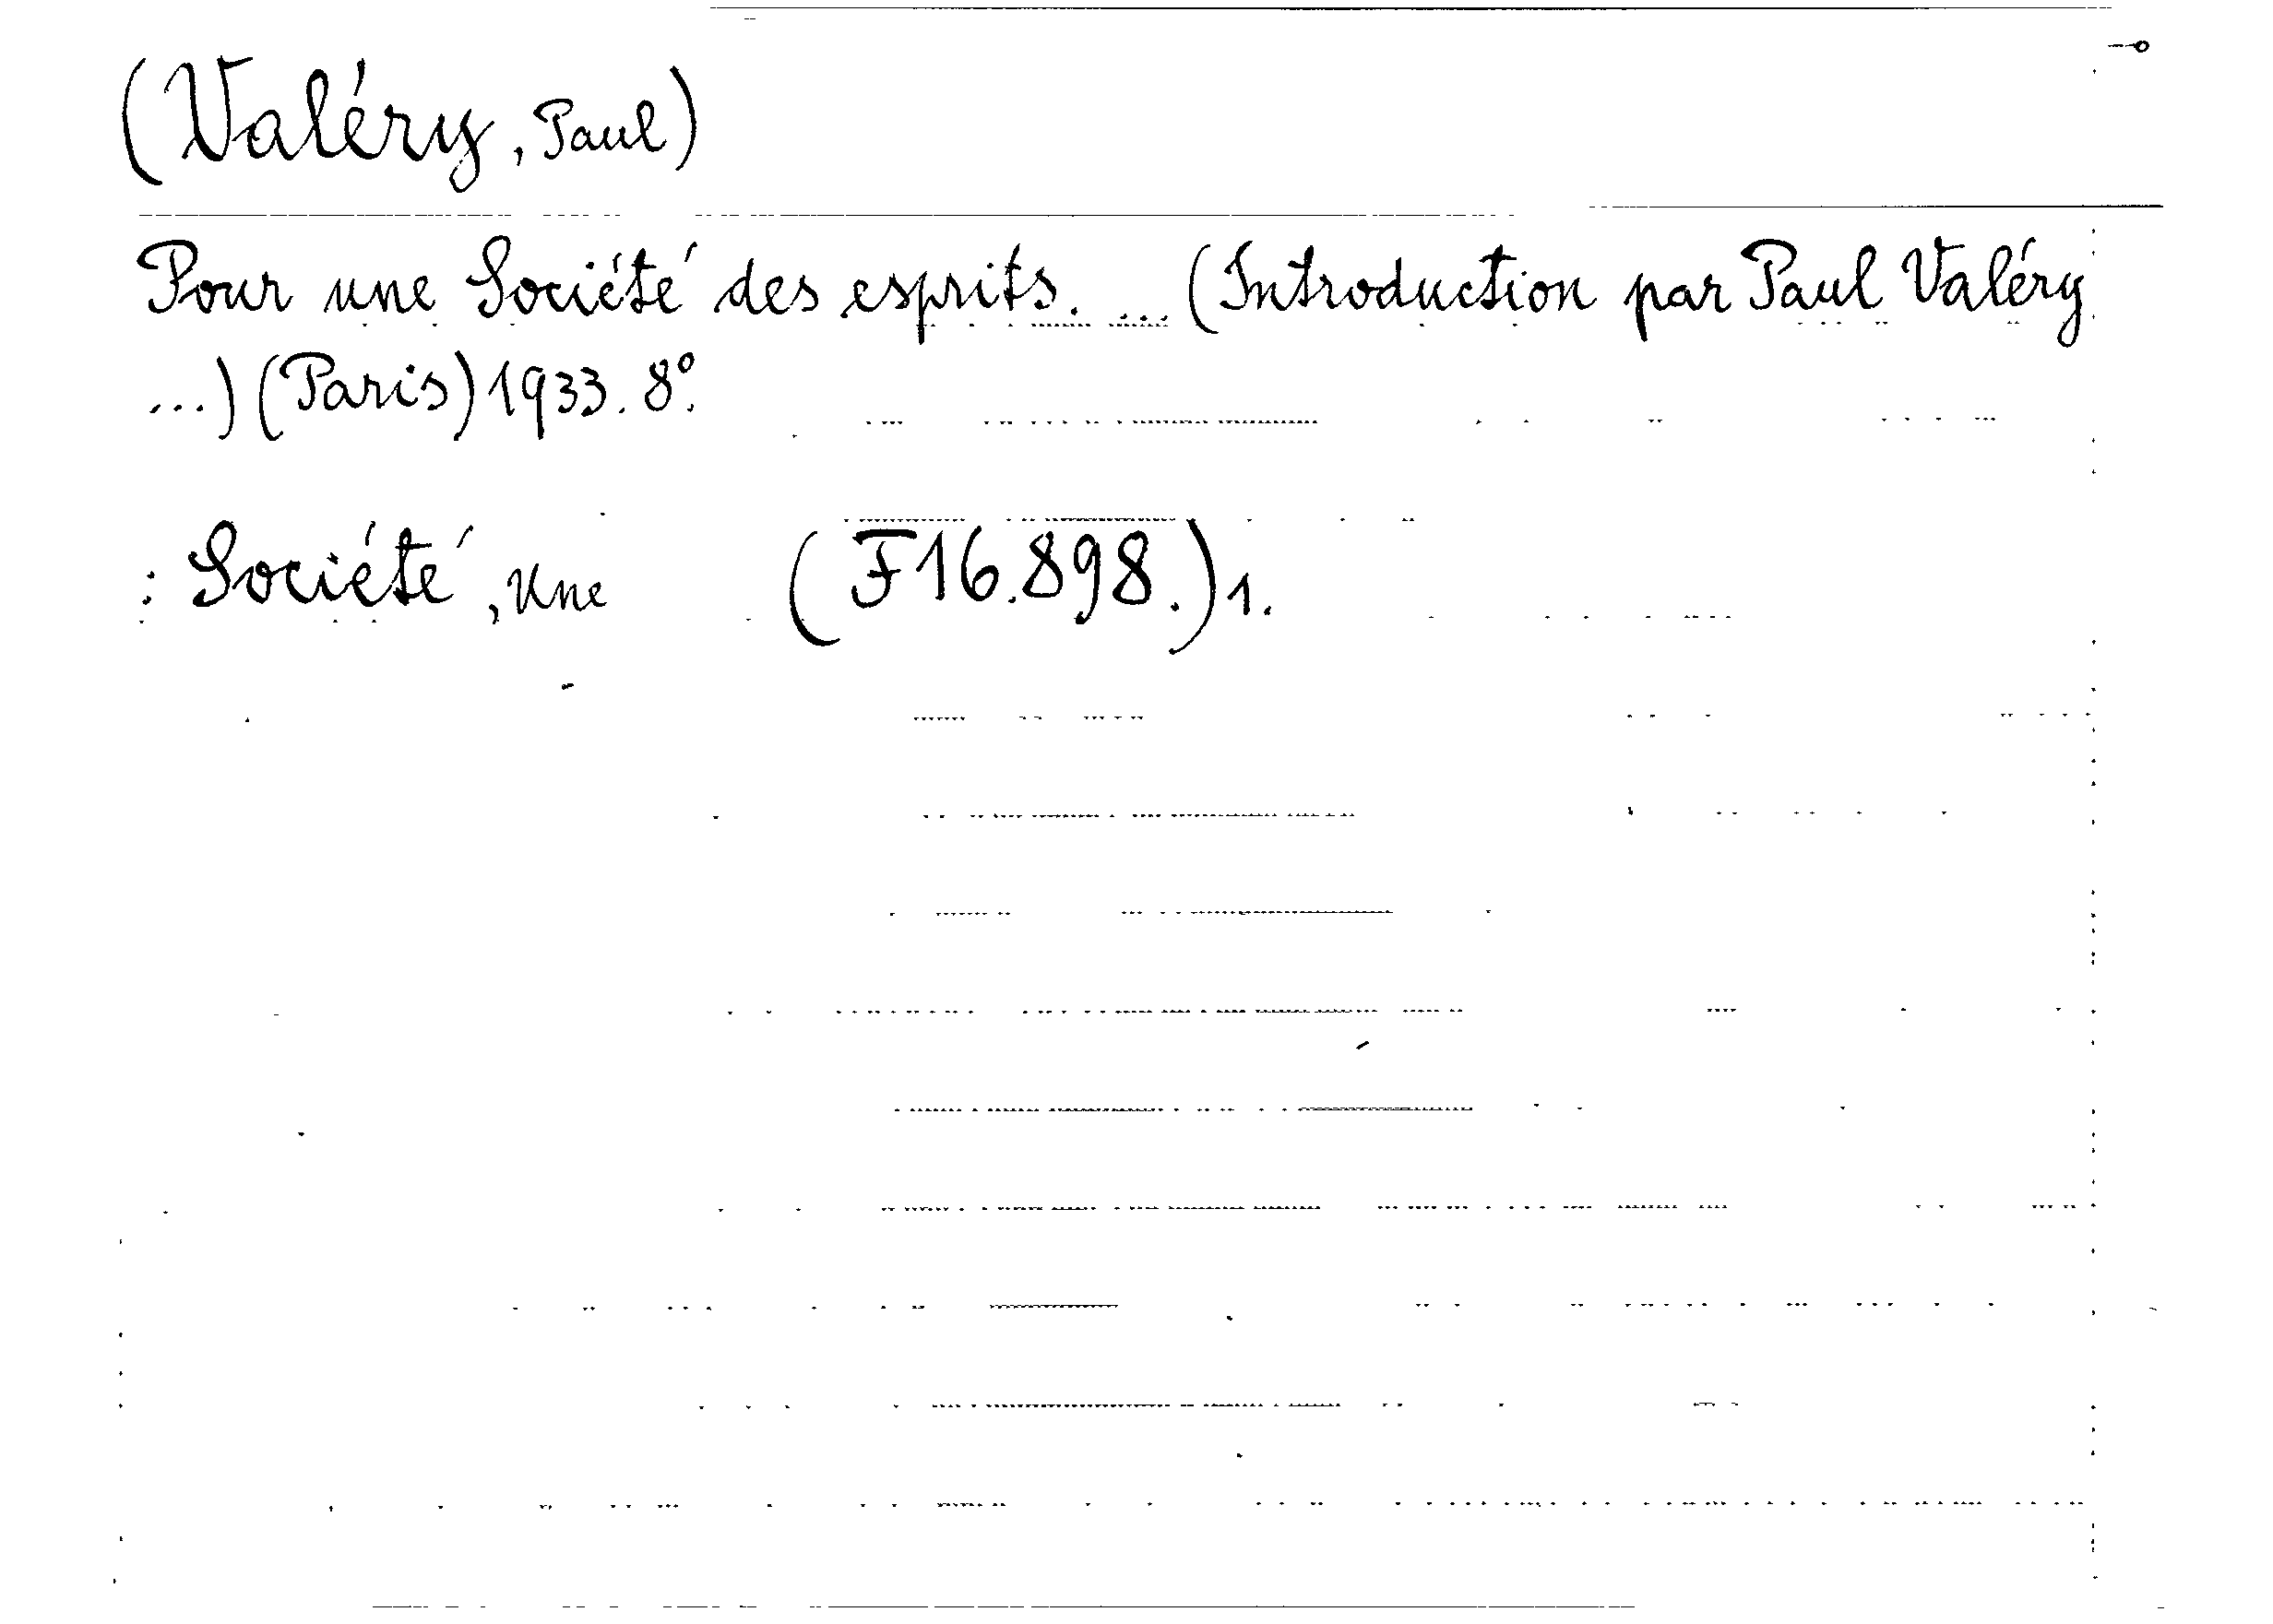 (Valéry, Paul)
Pour une Société des esprits. ... (Introduction par Paul Valéry
...) (Paris) 1933. 8°.
: Société, une (F16.898.) 1.